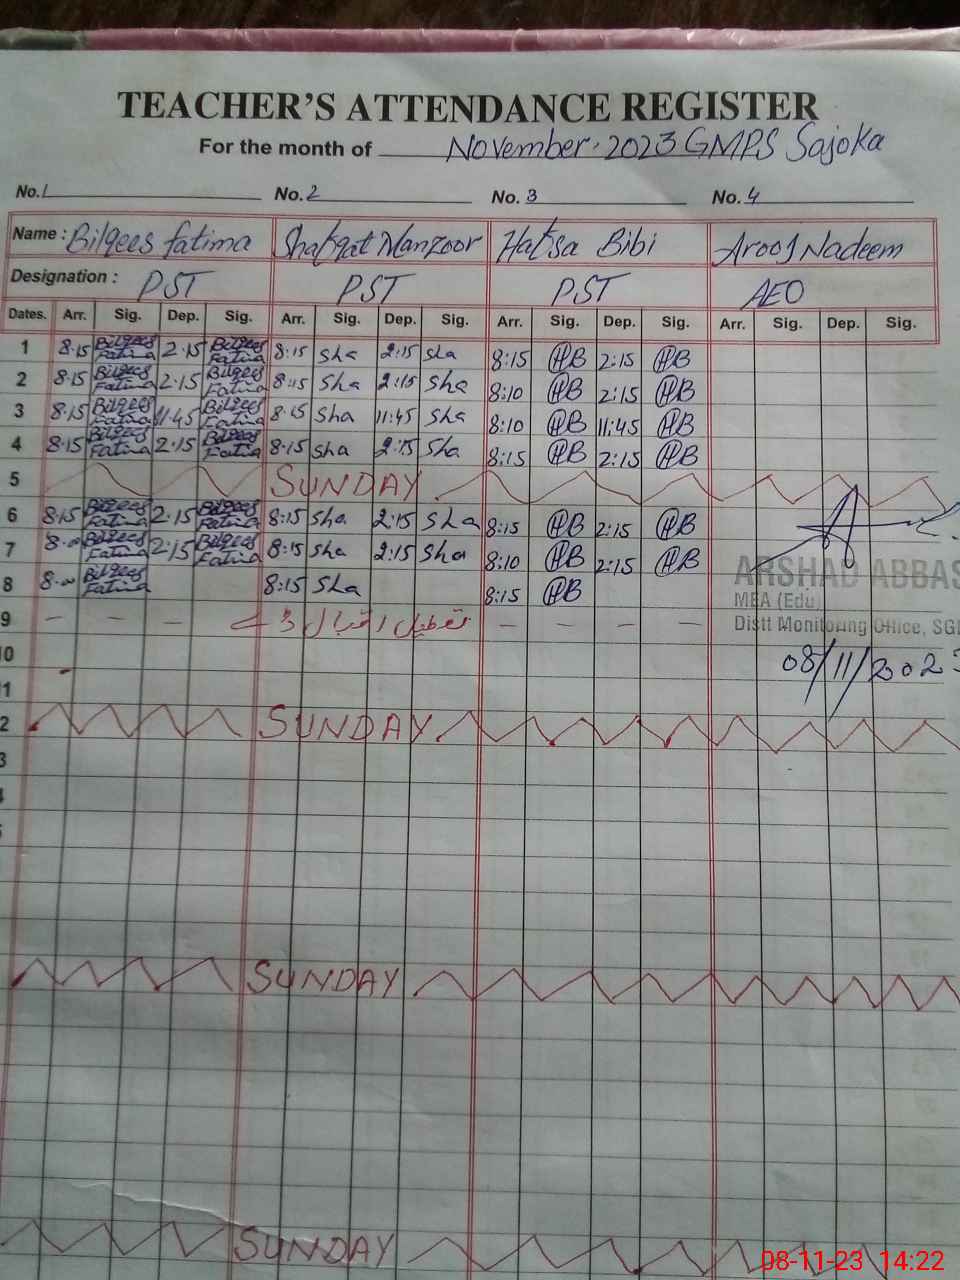 TEACHER'S ATTENDANCE REGISTER
For the month of November. 2023 GMPS Sajoka
No. 1 No. 2 No. 3 No. 4
Name : Bilqees fatima Shafqat Manzoor Hafsa Bibi Arooj Nadeem
Designation : PST PST PST AEO
Dates. Arr. Sig. Dep. Sig. Arr. Sig. Dep. Sig. Arr. Sig. Dep. Sig. Arr. Sig. Dep. Sig.
1 8.15 Bilqees Fatima 2.15 Bilqees Fatima 8:15 Sha 2:15 Sha 8:15 HB 2:15 HB
2 8.15 Bilqees Fatima 2.15 Bilqees Fatima 8:15 Sha 2:15 Sha 8:10 HB 2:15 HB
3 8.15 Bilqees Fatima 11.45 Bilqees Fatima 8:15 Sha 11:45 Sha 8:10 HB 11:45 HB
4 8.15 Bilqees Fatima 2.15 Bilqees Fatima 8:15 Sha 2:15 Sha 8:15 HB 2:15 HB
5 SUNDAY
6 8.15 Bilqees Fatima 2.15 Bilqees Fatima 8:15 Sha 2:15 Sha 8:15 HB 2:15 HB
7 8.00 Bilqees Fatima 2:15 Bilqees Fatima 8:15 Sha 2:15 Sha 8:10 HB 2:15 HB
8 8.00 Bilqees Fatima 8:15 Sha 8:15 HB
ARSHAD ABBAS
MEA (Edu)
Distt Monitoring Office, SG
9 – – – تعطیل اقبال ڈے – – – –
08/11/2023
10
11
12 SUNDAY
SUNDAY
SUNDAY
08-11-23 14:22